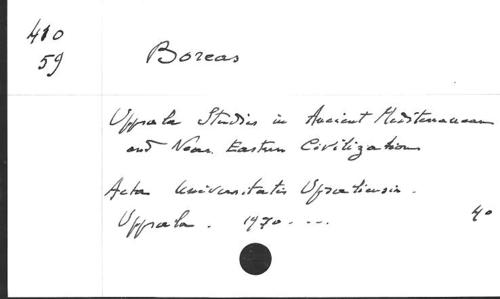 410
59
Boreas
Uppsala Studies in Ancient Mediterranean
and Near Eastern Civilizations
Acta Universitatis Upsaliensis.
Uppsala. 1970. ...
40